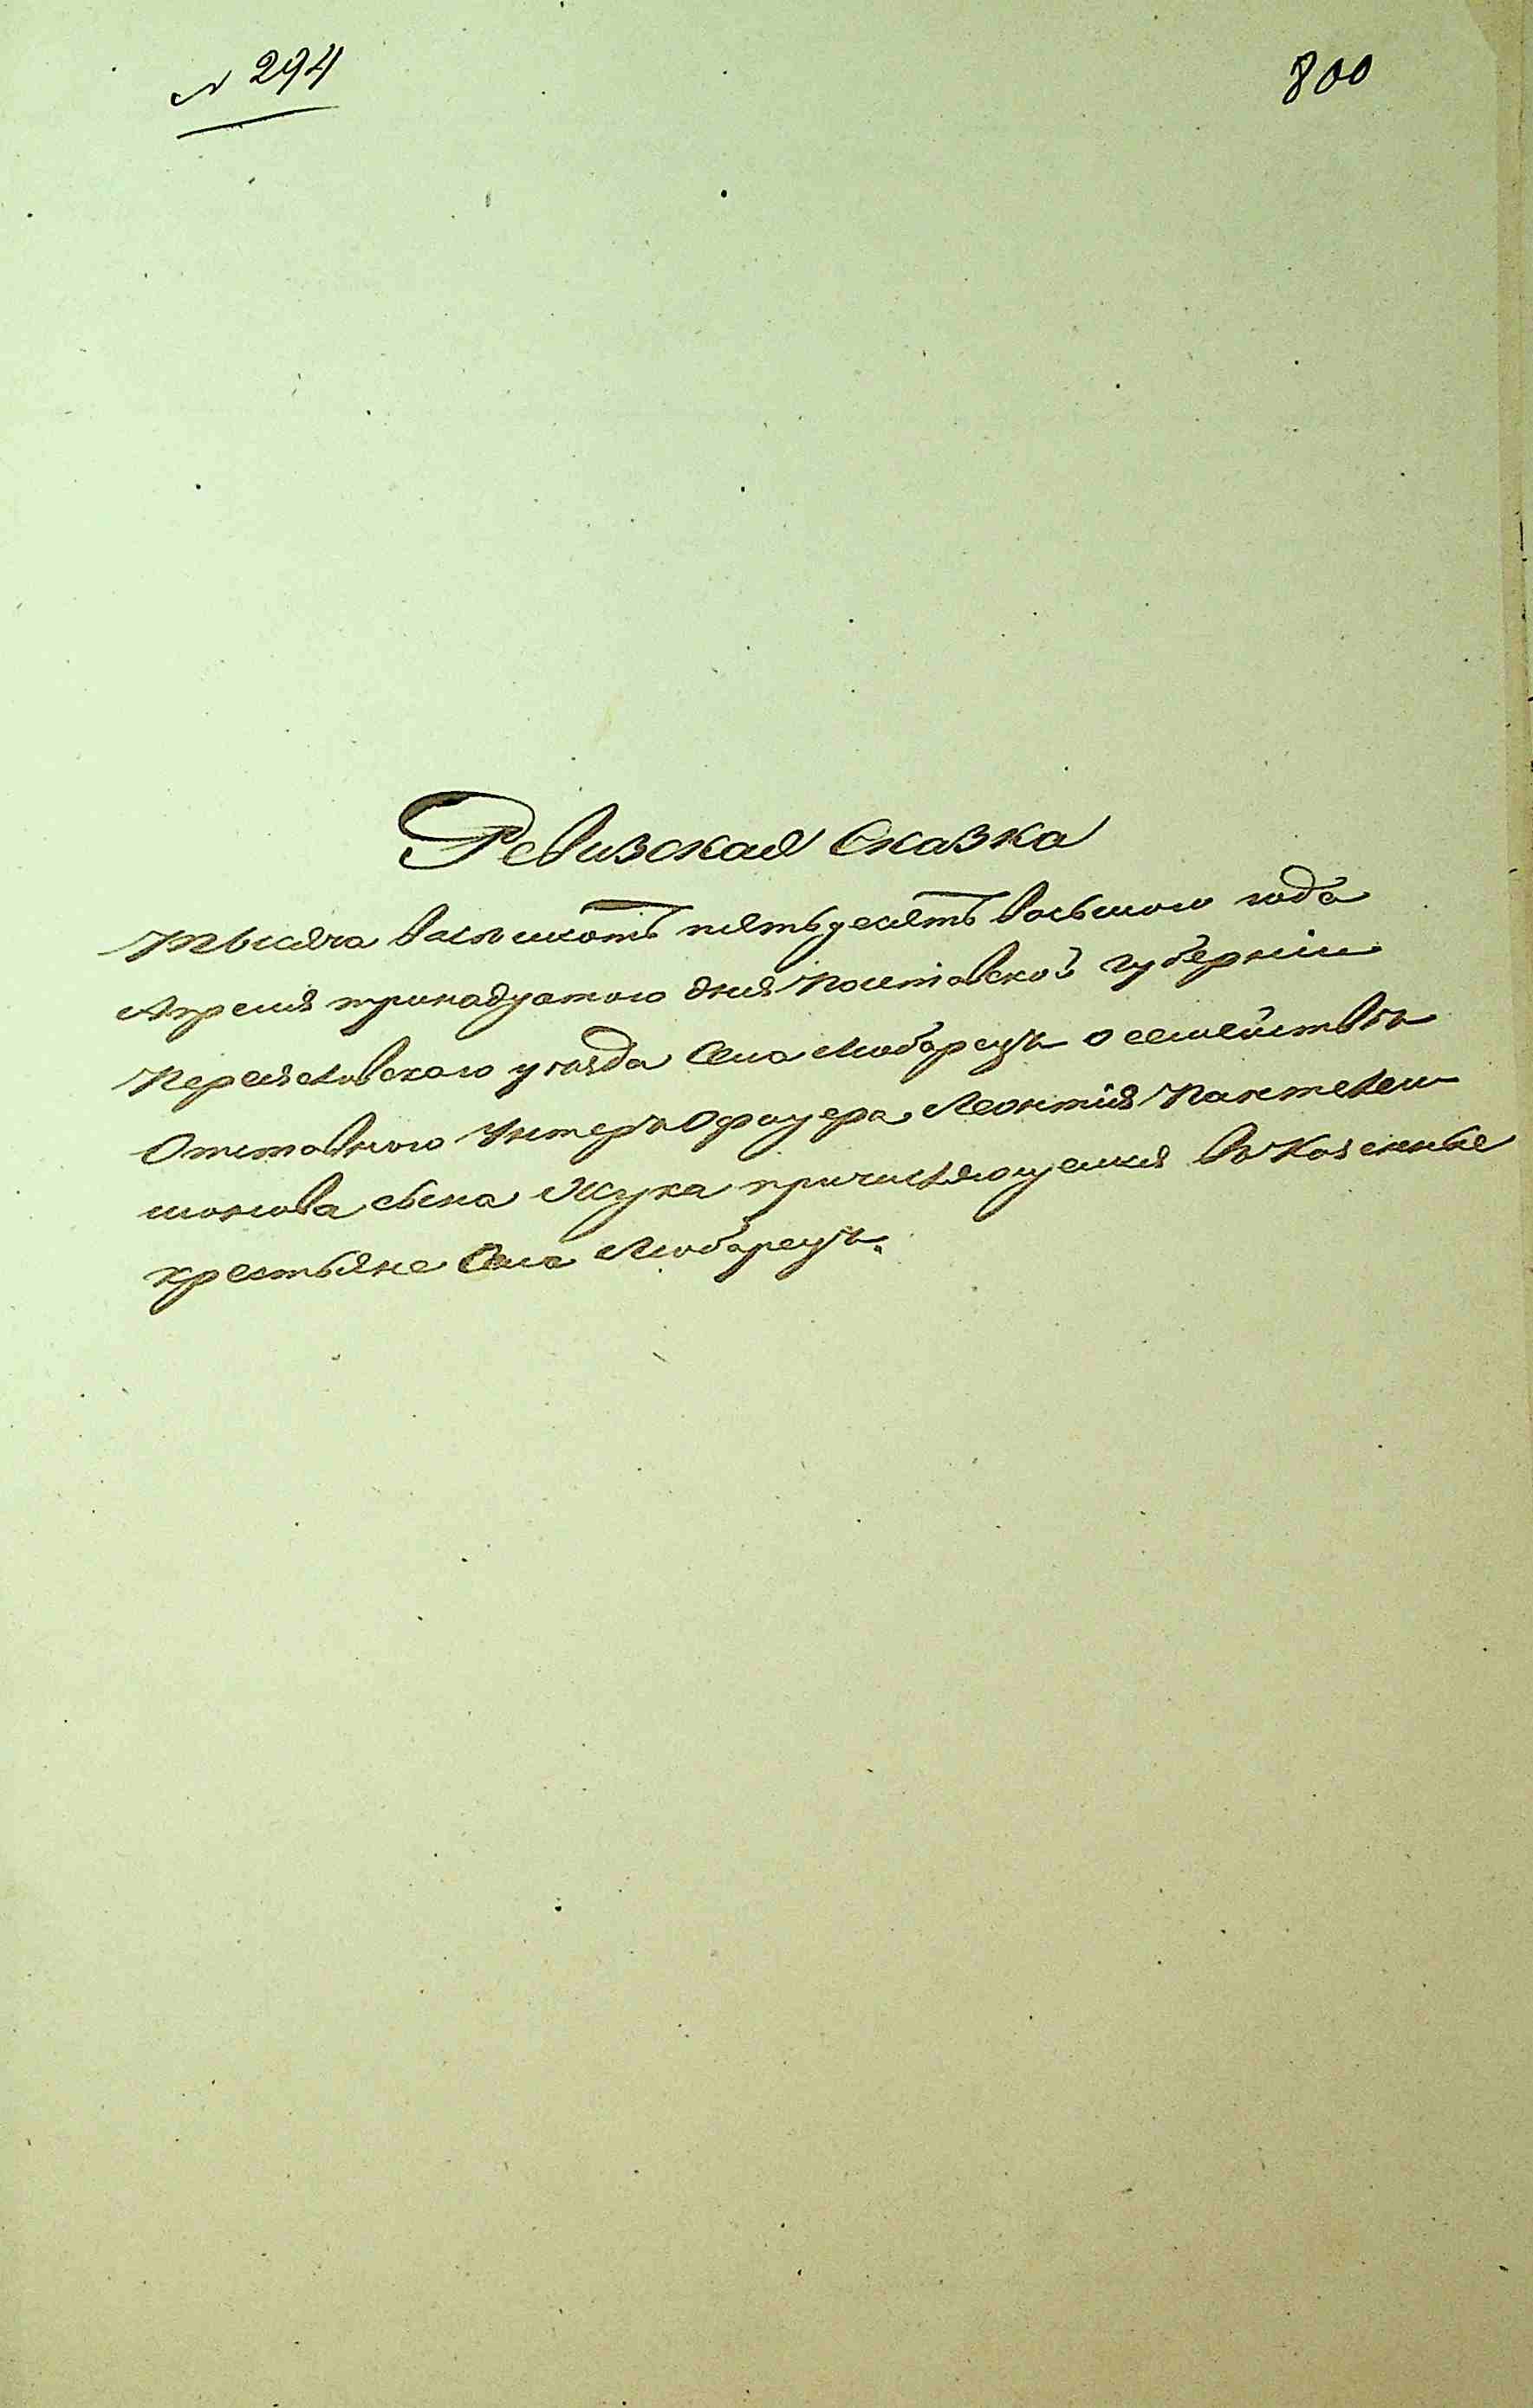 № 294
800
Ревизская Сказка
Тысяча восемсотъ пятьдесятъ восьмого года
Апреля тринадцатого дня Полтавской губернии
Переяславского уезда Села Любарецъ о семействѣ
Отставного Унтеръ Офицера Леонтия Пантелей
монова сына Жука причисляющемся въ Казенные
крестьяне Села Любарецъ.